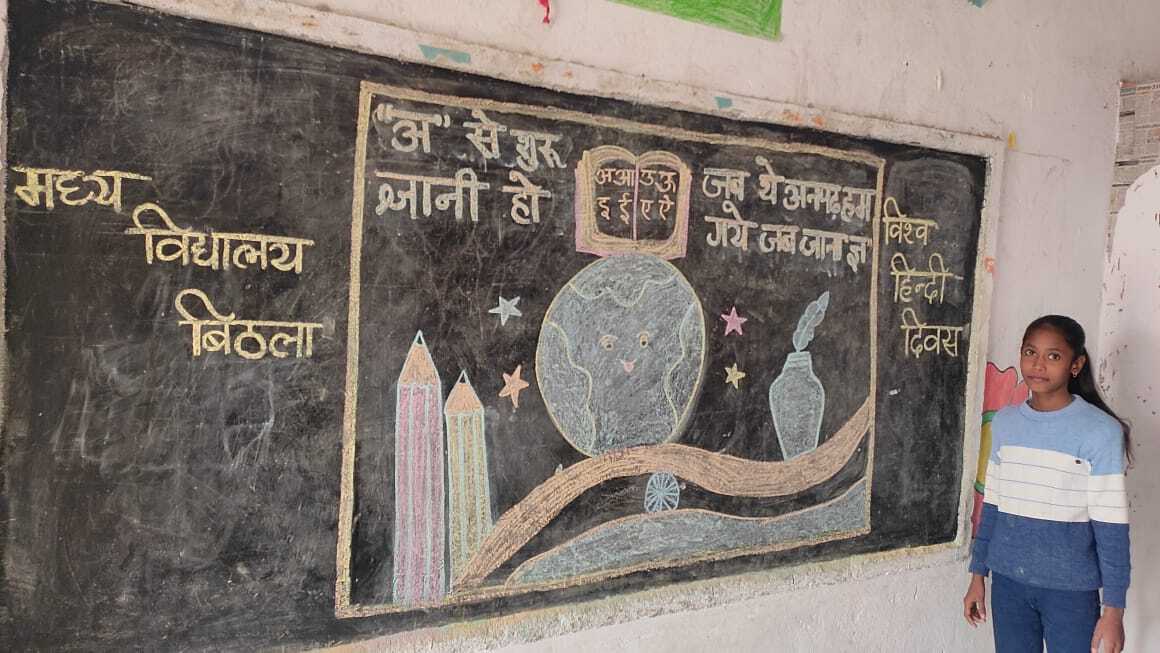 मध्य
विद्यालय
बिठला
"अ" से शुरू
ज्ञानी हो
अ आ उ ऊ
इ ई ए ऐ
जब थे अनपढ़ हम।
गये जब जाना ज्ञ
विश्व
हिन्दी
दिवस